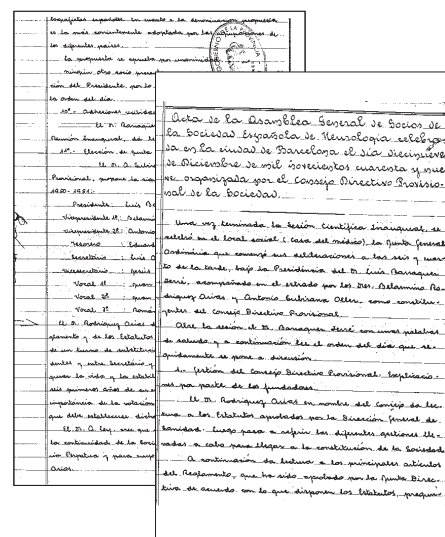 taquistas españoles en cuanto a la denominación propuesta
es la más corrientemente adoptada por las agrupaciones de
los diferentes países.
La propuesta se aprueba por unanimidad
ningún otro socio
ción del Presidente, por lo
la orden del día.
10º - Adhesiones recibidas
El Dr. Barraquer
Reunión Inaugural, de la
11º - Elección de Junta
El Dr. A. Subira
Provisional, propone la
1950-1951:
Presidente: Luis Ba
Vicepresidente 1º: Belarmino
Vicepresidente 2º: Antonio
Tesorero : Eduard
Secretario : Luis
Vicesecretario : Jesús
Vocal 1º : Juan
Vocal 2º : Juan
Vocal 3º : Román
El Dr. Rodriguez Arias
glamento y de los Estatutos
de un turno de
dentes y entre Secretario y
guran la vida y la
seis primeros años de
importancia de la rotación
que debe establecerse dicho
El Dr. A. Ley, cree que
la continuidad de la Socie
rio Perpetuo y para cargo
Arias.
Acta de la Asamblea General de Socios de
la Sociedad Española de Neurología celebra
da en la ciudad de Barcelona el día diecinueve
de Diciembre de mil novecientos cuarenta y nue
ve, organizada por el Consejo Directivo Provisio-
nal de la Sociedad.
Una vez terminada la Sesión Científica Inaugural, se
celebró en el local social (Casa del Médico), la Junta General
Ordinaria que comenzó sus deliberaciones a las seis y cuar
to de la tarde, bajo la Presidencia del Dr. Luis Barraquer
Ferré, acompañado en el estrado por los Dres. Belarmino Ro-
driguez Arias y Antonio Subirana Oller, como constitu-
yentes del Consejo Directivo Provisional.
Abre la sesión el Dr. Barraquer Ferré con unas palabras
de saludo y a continuación lee el orden del día que se-
guidamente se pone a discusión.
1.- Gestión del Consejo Directivo Provisional. Explicacio-
nes por parte de los fundadores.
El Dr. Rodriguez Arias en nombre del Consejo da lec
tura a los Estatutos aprobados por la Dirección General de
Sanidad. Luego pasa a referir las diferentes gestiones lle-
vadas a cabo para llegar a la constitución de la Sociedad.
A continuación da lectura a los principales artículos
del Reglamento, que ha sido aprobado por la Junta Direc-
tiva de acuerdo con lo que disponen los Estatutos, pregun-